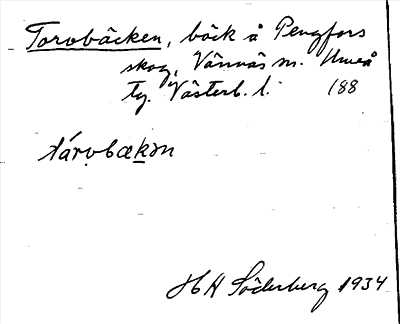 Torvbäcken, bäck å Pengfors
skog, Vännäs sn. Umeå
tg. Västerb. l. 188
tárvbækən
H A Söderberg 1934